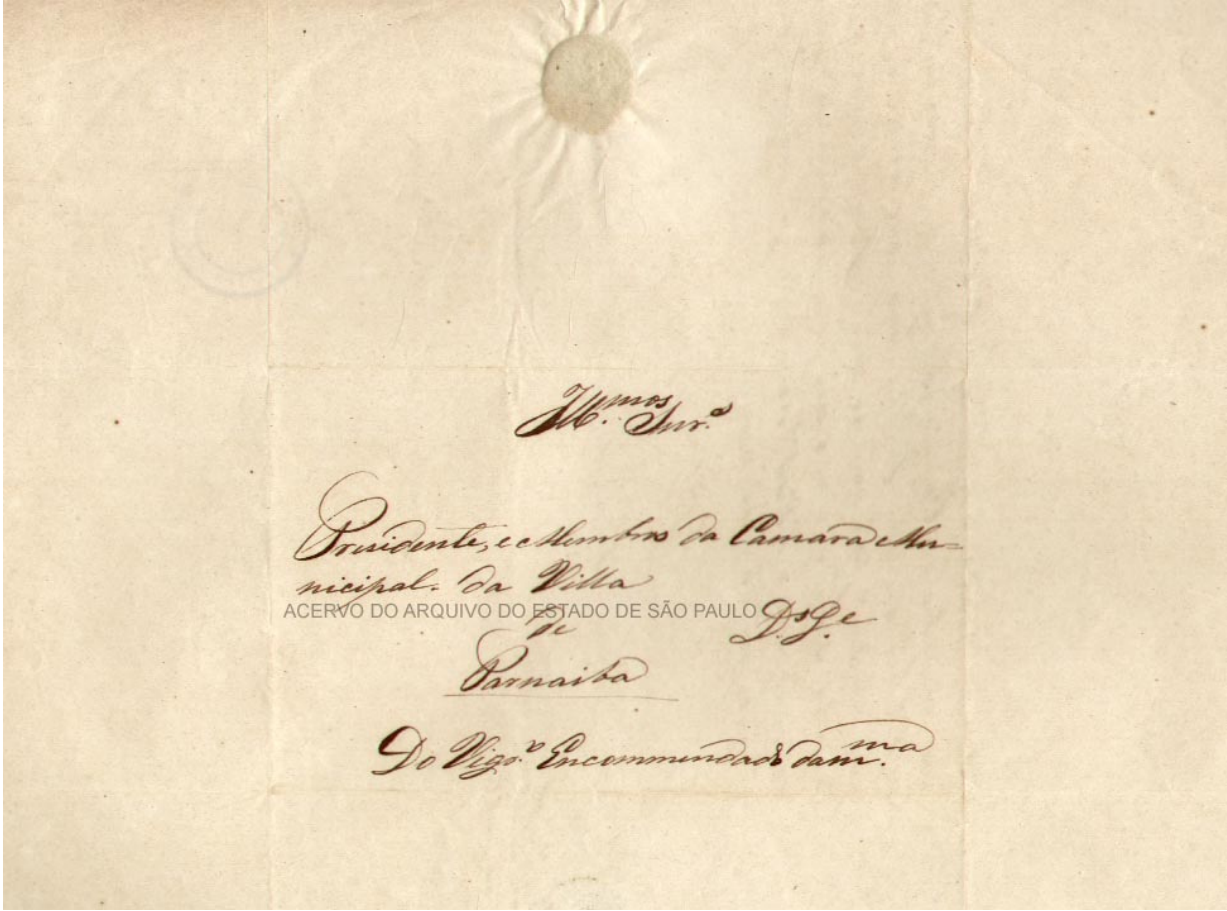 Ill.mos Snr.es
Presidente, e Membros da Camara Mu=
nicipal da Villa
ACERVO DO ARQUIVO DO ESTADO DE SÃO PAULO
de D.s G.e
Parnaiba
Do Vigr.o Encommendado da m.ma